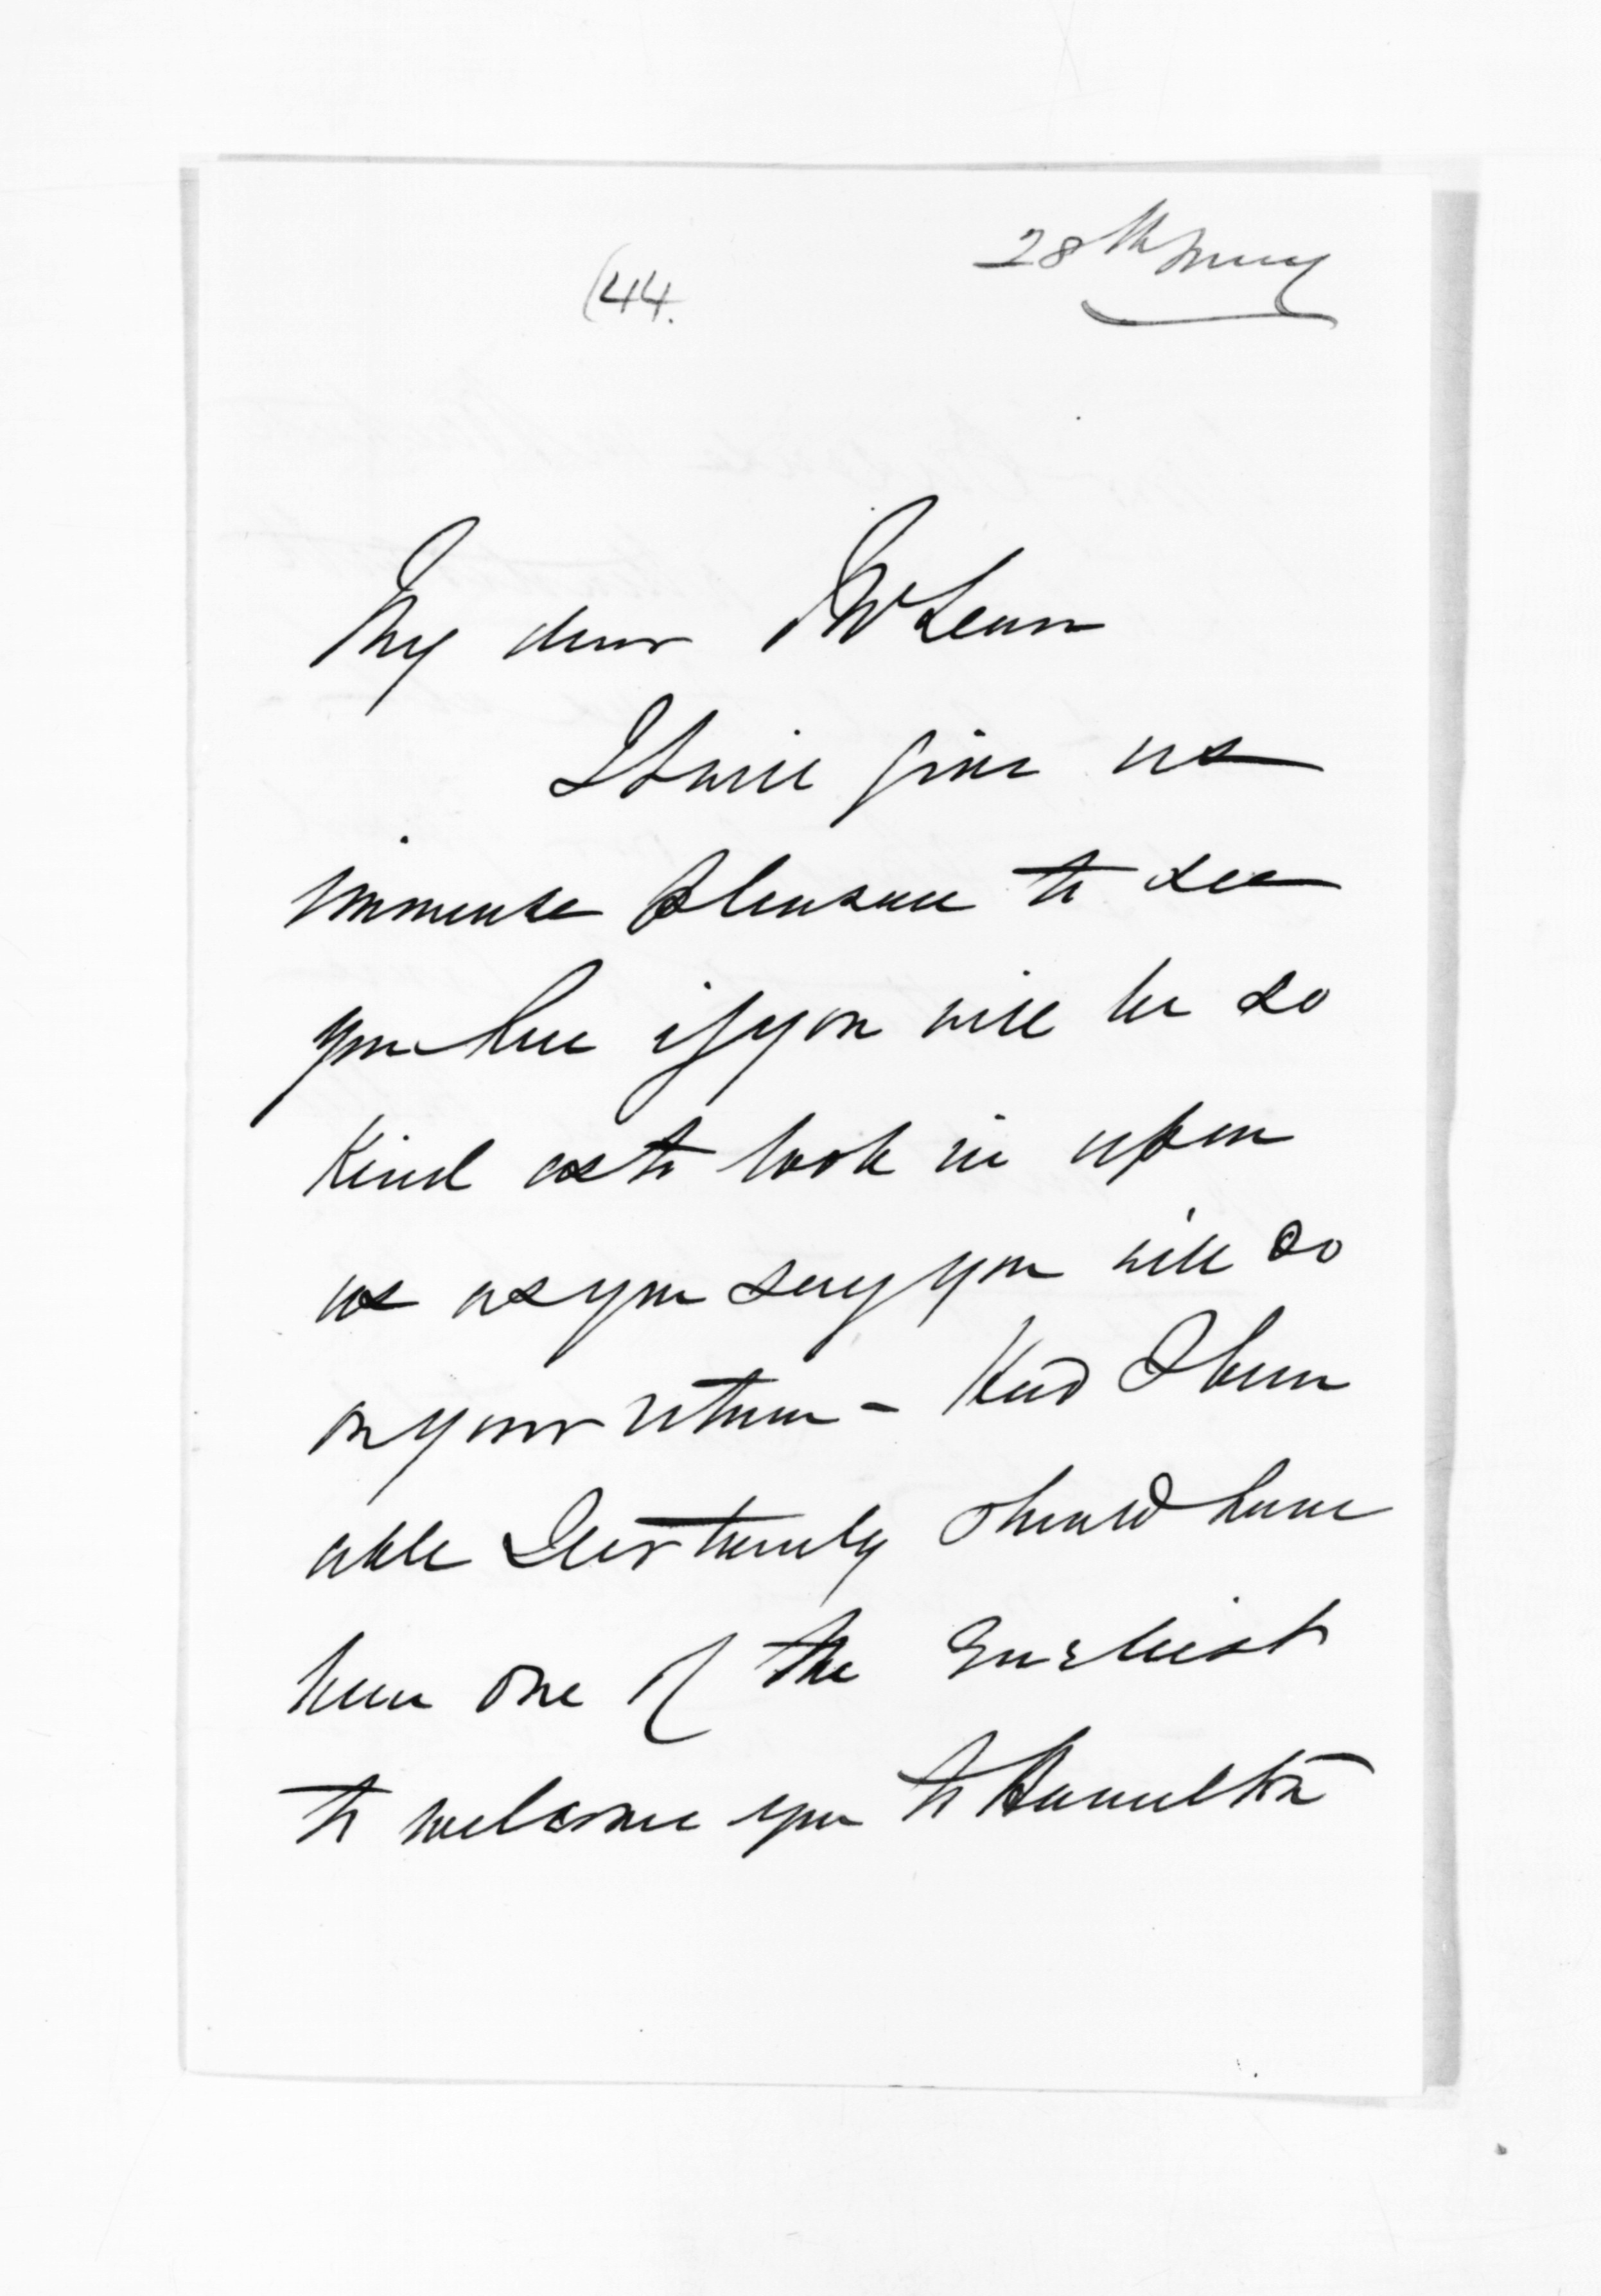 (44.
28th May
My dear McLean
It will give us
immense pleasure to see
you here if you will be so
kind as to look in upon
us as you say you will do
on your return - Had I been
able I certainly should have
been one of the Earliest
to welcome you to Hamilton